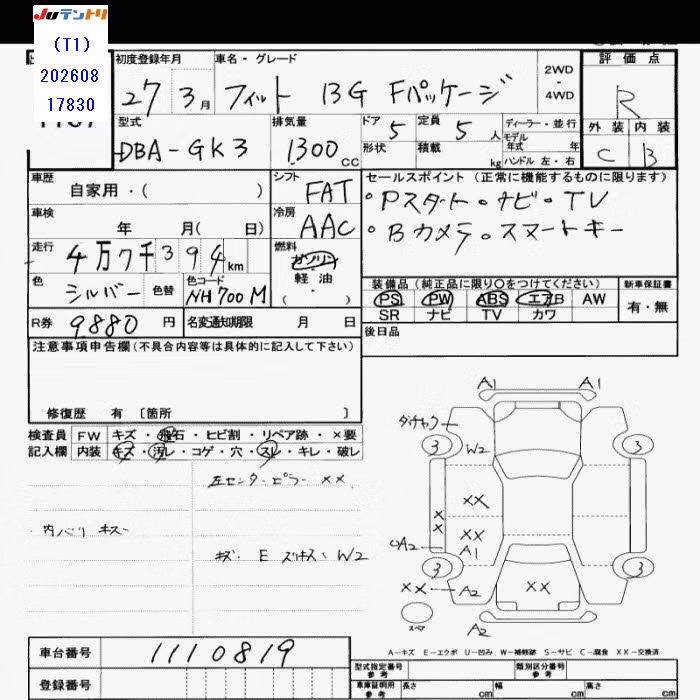 JUテントリ
(T1)
202608
17830
初度登録年月 車名・グレード 2WD・4WD 評価点
27 3月 フィット 13G Fパッケージ R
型式 排気量 ドア 定員 ディーラー・並行 外装 内装
DBA-GK3 1300cc 5 5人 モデル年式 年 C B
形状 積載 kg ハンドル 左・右
車歴 シフト セールスポイント (正常に機能するものに限ります)
自家用・( ) FAT ・Pスタート・ナビ・TV
車検 冷房 ・Bカメラ・スマートキー
年 月( 日) AAC
走行 燃料
4万7千394km ガソリン・軽油 ( )
色 色替 色コード 装備品 (純正品に限り〇をつけてください) 新車保証書
シルバー NH700M PS PW ABS エアB AW 有・無
SR ナビ TV カワ
R券 9880円 名変通知期限 月 日 後日品
注意事項申告欄 (不具合内容等は具体的に記入して下さい)
修復歴 有 [箇所 ]
検査員 FW キズ・飛石・ヒビ割・リペア跡・×要
記入欄 内装 キズ・汚レ・コゲ・穴・スレ・キレ・破レ
左センターピラー XX
内バリ キズ
A1 A1
3 W2 3
XX
X
X XX
A2 A1
3 3
XX A2 XX
スペア A2
A-キズ E-エクボ U-凹み W-補修跡 S-サビ C-腐食 XX-交換済
車台番号 1110819
登録番号
型式指定番号 参考 類別区分番号 参考
車庫証明用 参考 長さ cm 幅 cm 高さ cm